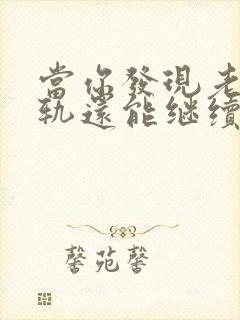 當你發現老
軌還能继續
馨苑馨